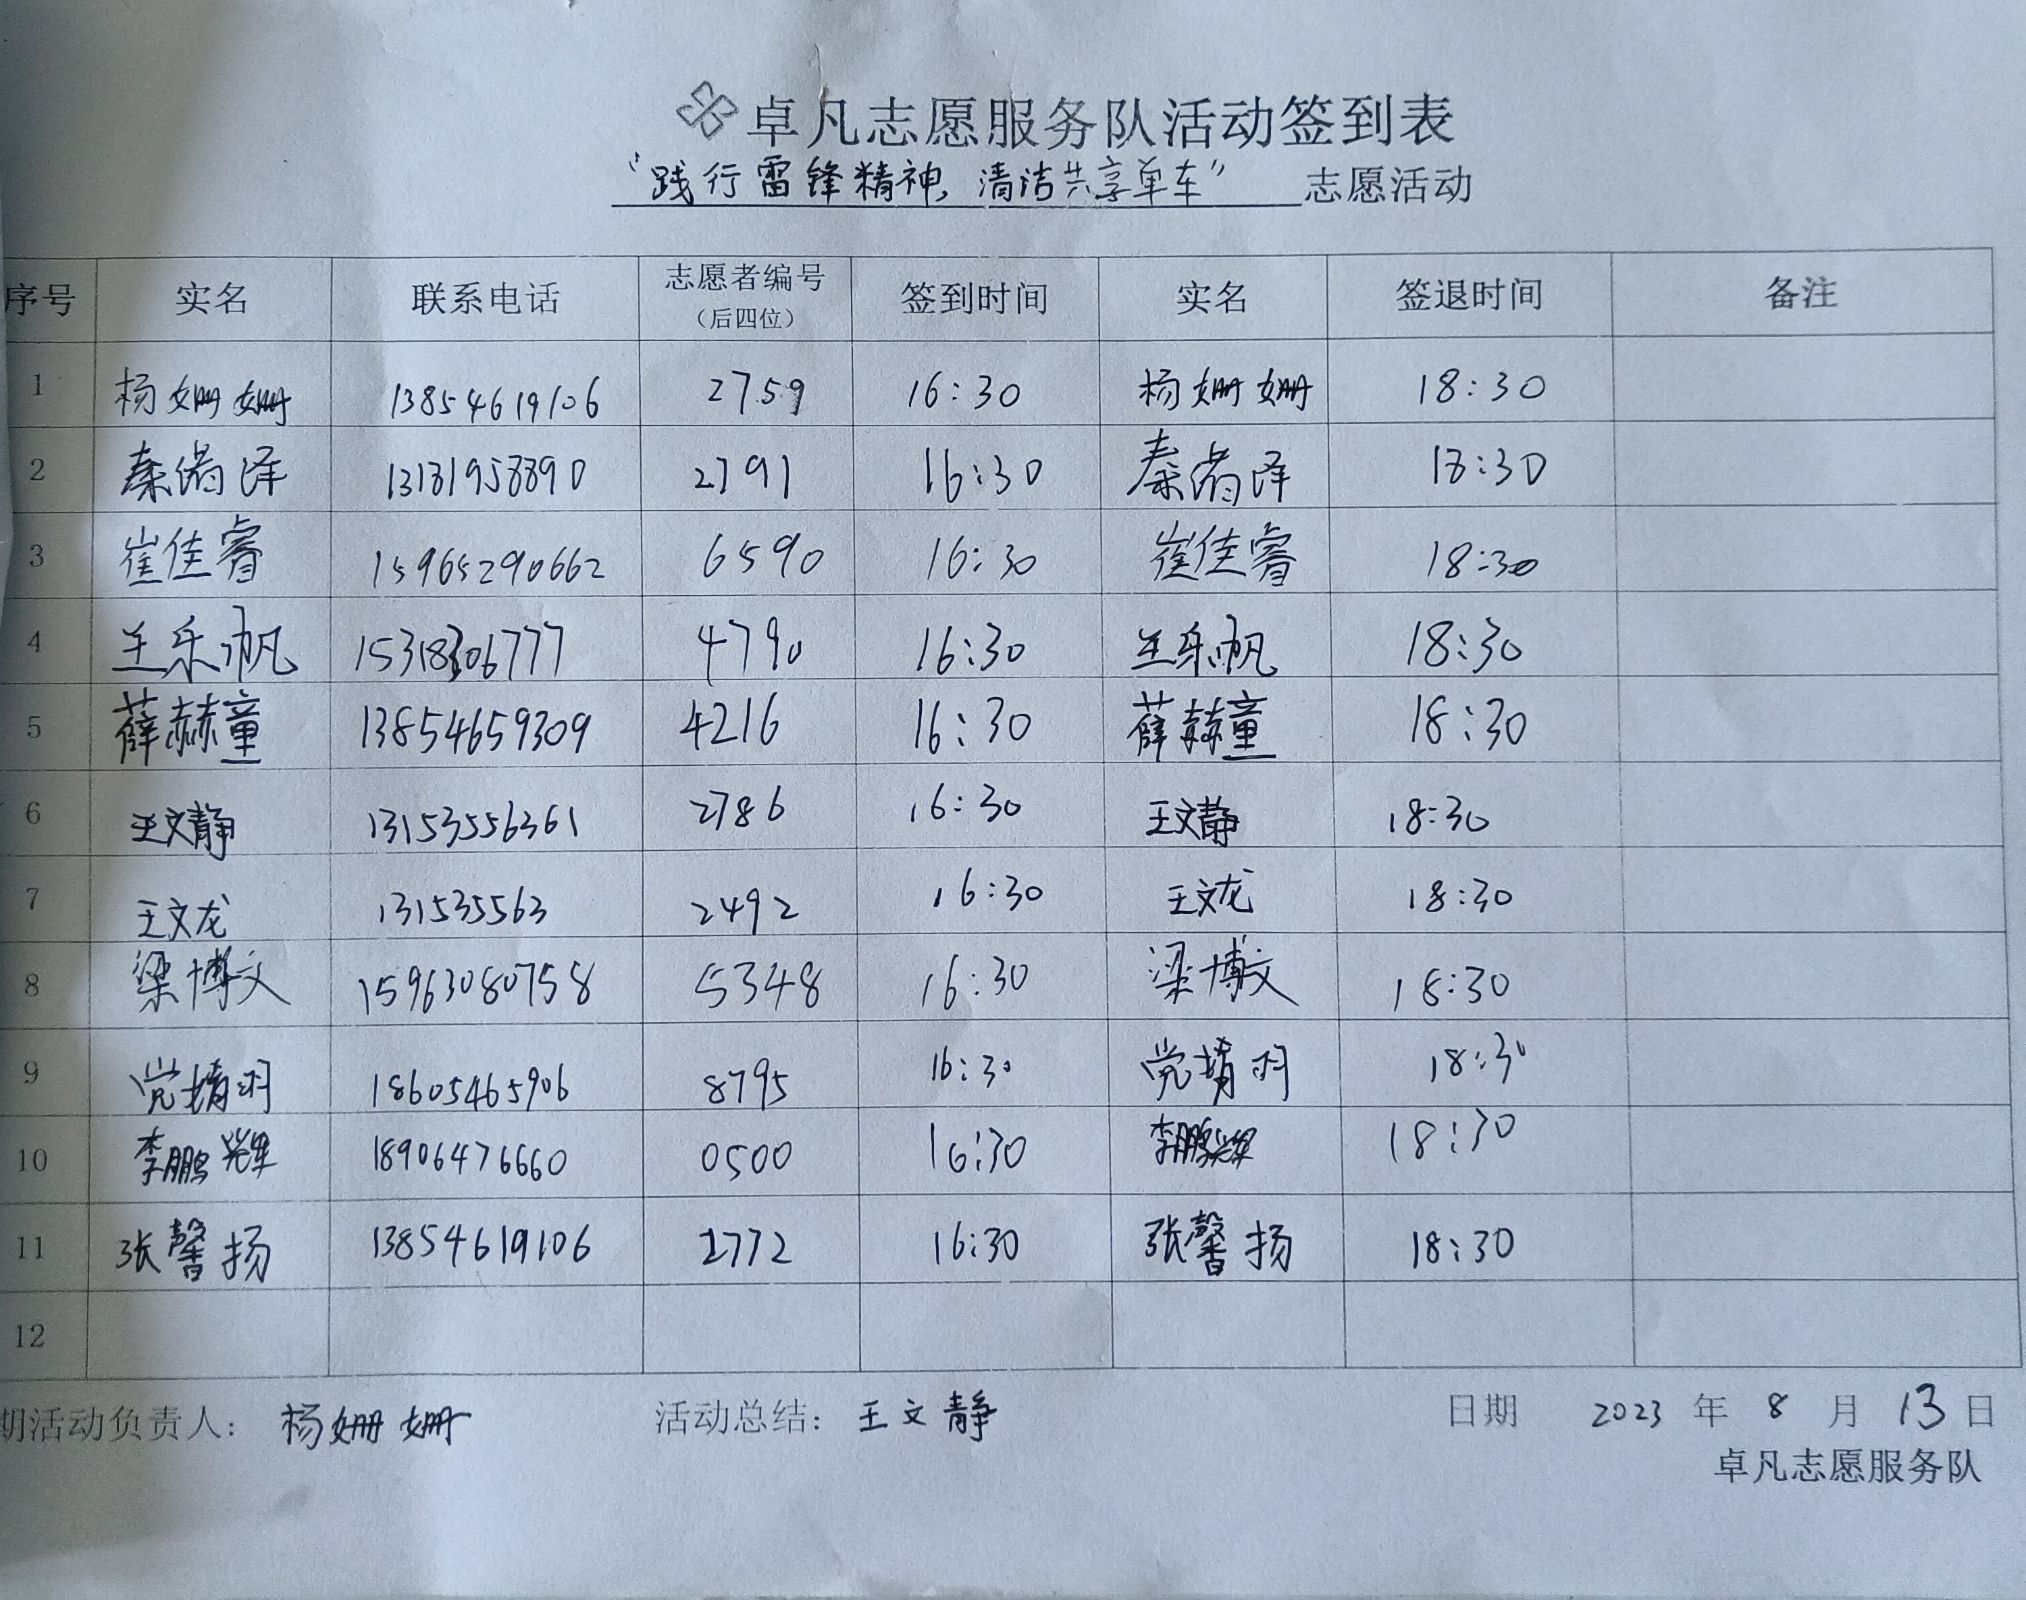 卓凡志愿服务队活动签到表
“践行雷锋精神，清洁共享单车” 志愿活动
序号 实名 联系电话 志愿者编号（后四位） 签到时间 实名 签退时间 备注
1 杨姗姗 13854619106 2759 16:30 杨姗姗 18:30
2 13181958890 2791 16:30 18:30
3 崔佳睿 15965290662 6590 16:30 崔佳睿 18:30
4 王乐帆 15318306777 4790 16:30 王乐帆 18:30
5 薛赫童 13854659309 4216 16:30 薛赫童 18:30
6 王文静 13153556361 2786 16:30 王文静 18:30
7 王文龙 131535563 2492 16:30 王文龙 18:30
8 梁博文 15963080758 5348 16:30 梁博文 18:30
9 党婧羽 18605465906 8795 16:30 党婧羽 18:30
10 李鹏辉 18906476660 0500 16:30 李鹏辉 18:30
11 张馨扬 13854619106 2772 16:30 张馨扬 18:30
12
期活动负责人：杨姗姗 活动总结：王文静 日期 2023 年 8 月 13 日
卓凡志愿服务队